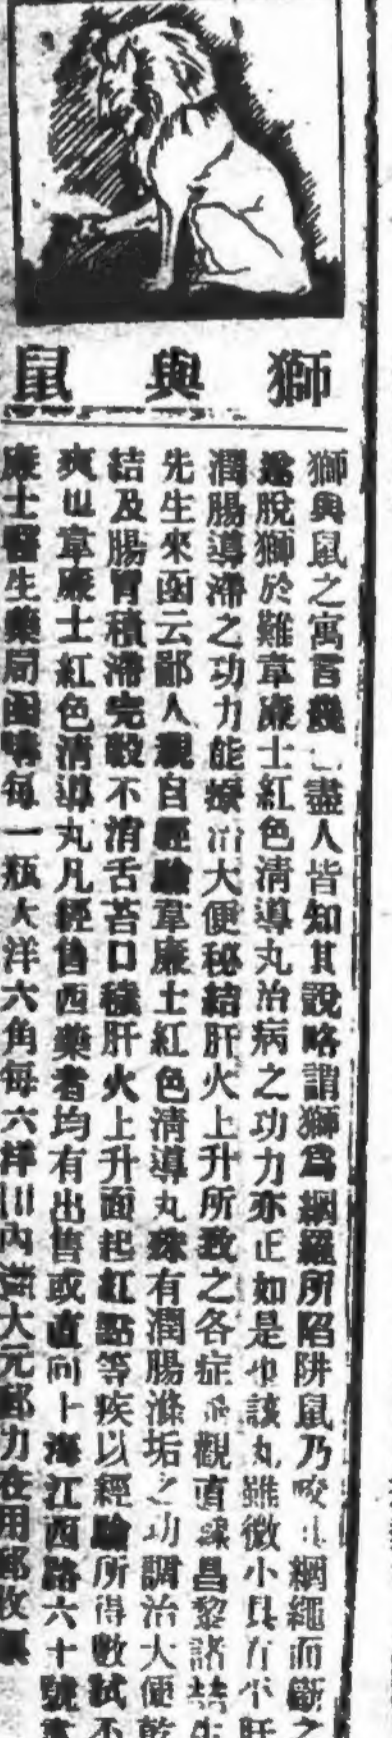 獅與鼠
獅與鼠之寓言幾盡人皆知其說略謂獅爲網羅所陷阱鼠乃咬網繩而斷之
脫獅於難韋廉士紅色清導丸治病之功力亦正如是也該丸雖微小具有
潤腸導滯之功力能療治大便秘結肝火上升所致之各症觀直隸昌黎諸
先生來函云鄙人親自經驗韋廉士紅色清導丸殊有潤腸滌垢之功調治大便乾
結及腸胃積滯完穀不消舌苔口穢肝火上升面起紅點等疾以經驗所得數試不
爽也韋廉士紅色清導丸凡經售西藥者均有出售或直向上海江西路六十號韋
廉士醫生藥局函購每一瓶大洋六角每六瓶大元郵力在內